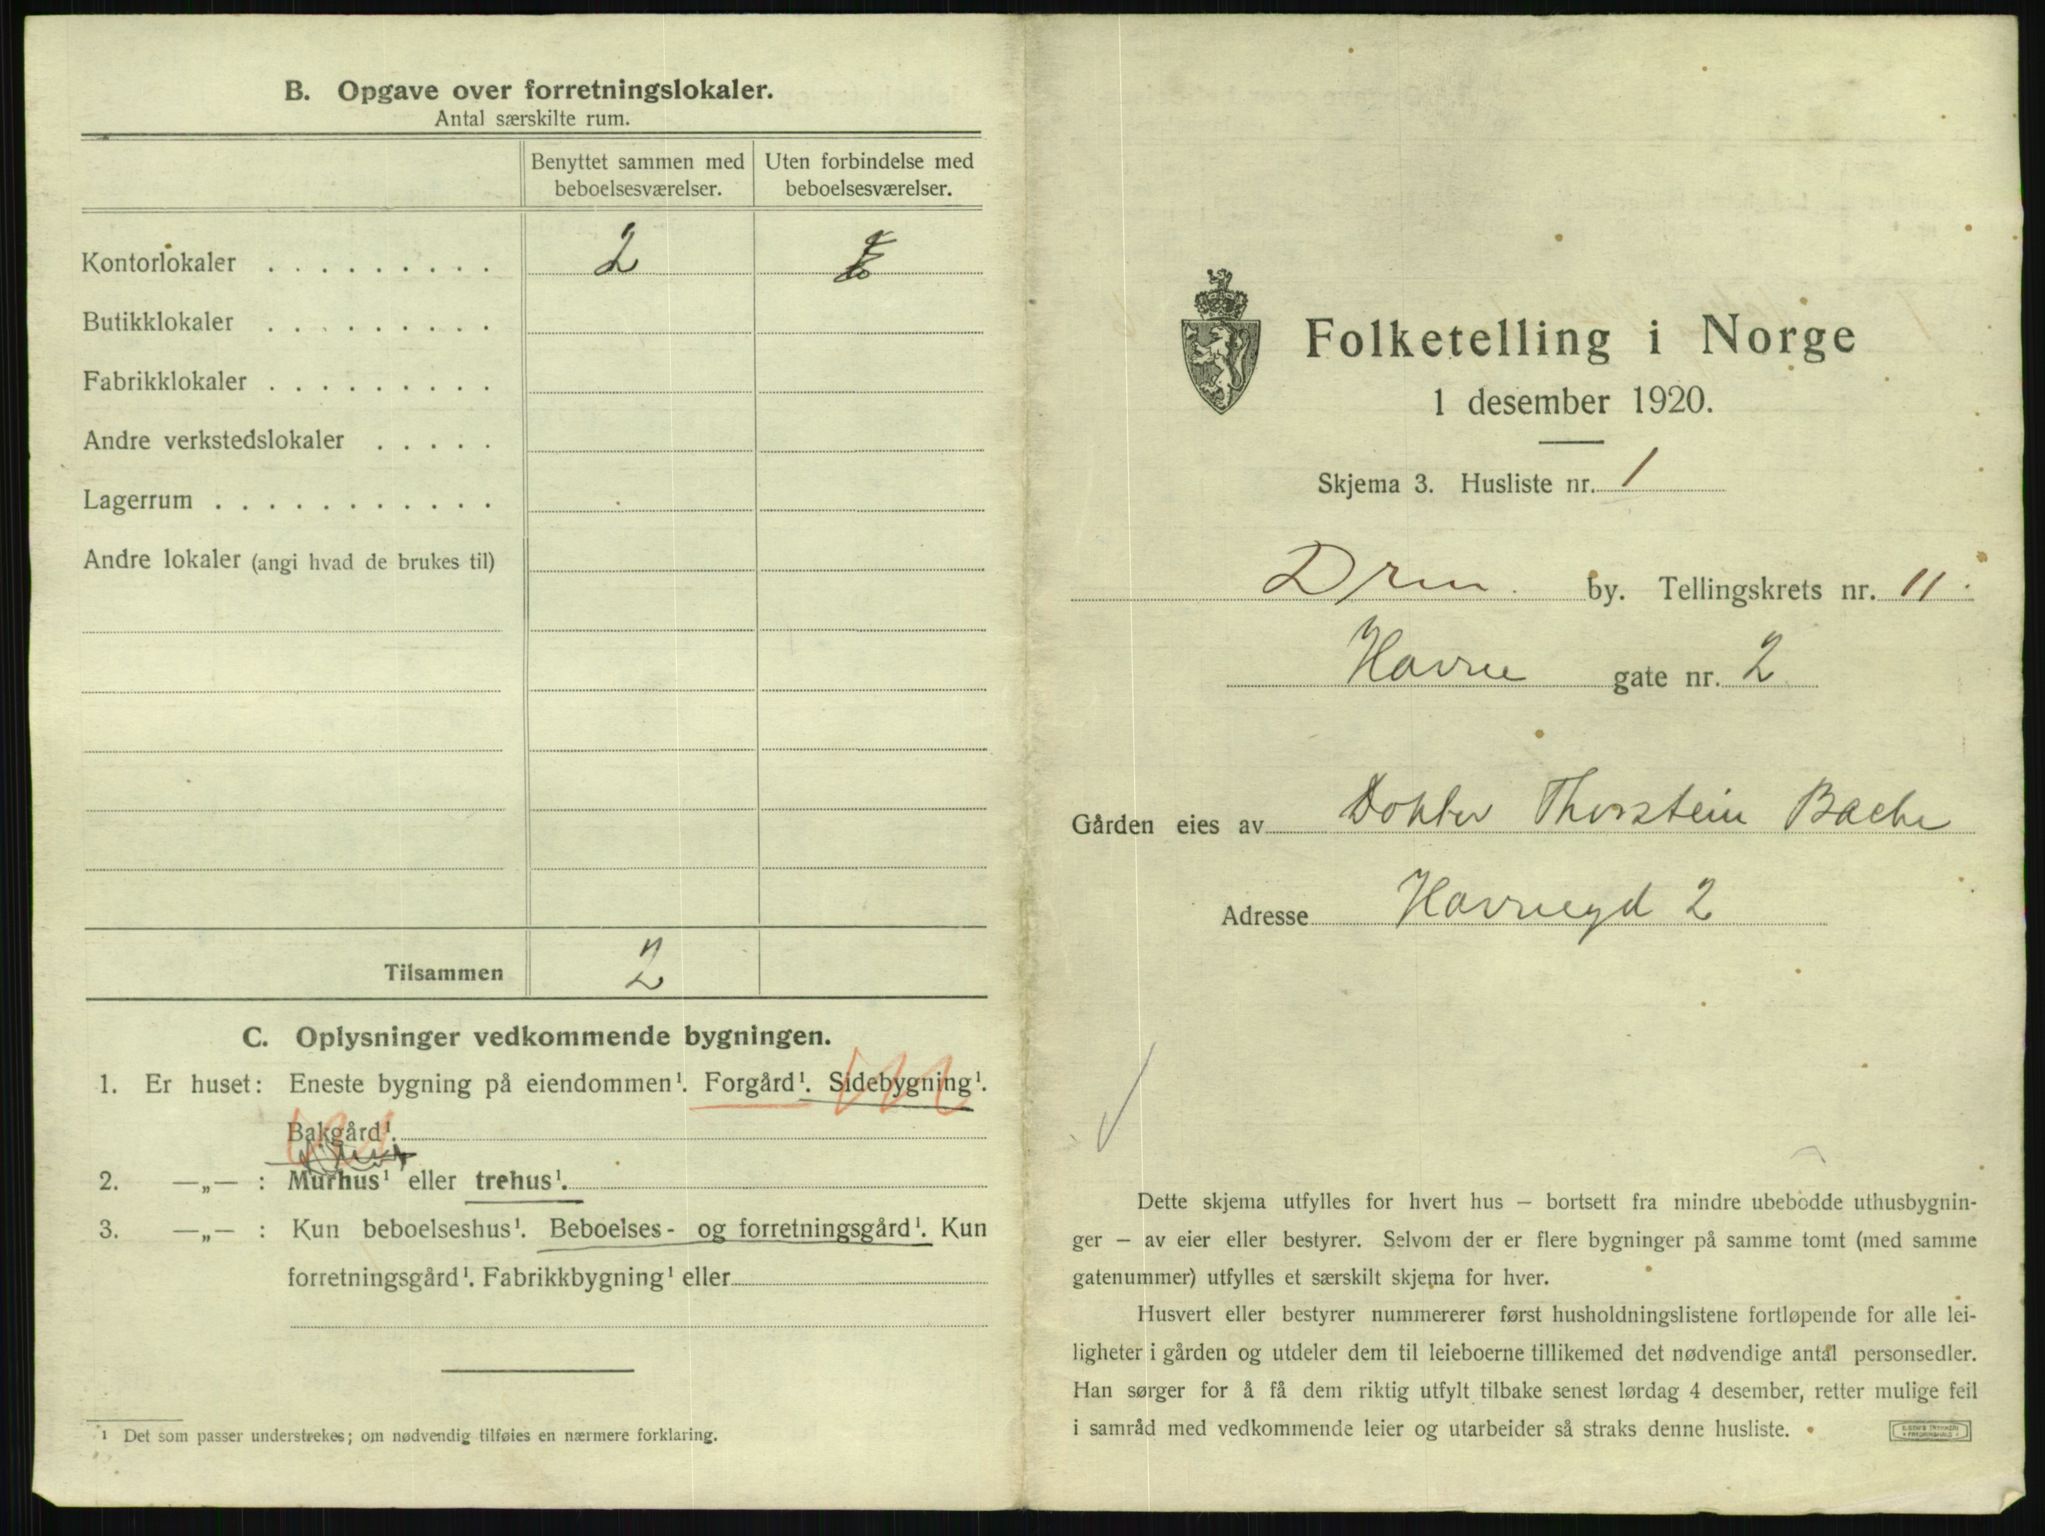 B. Opgave over forretningslokaler.
Antal særskilte rum.
Benyttet sammen med beboelsesværelser.
Uten forbindelse med beboelsesværelser.
Kontorlokaler . . . . . . . . . 2
Butikklokaler . . . . . . . . .
Fabrikklokaler . . . . . . . . .
Andre verkstedslokaler . . . . .
Lagerrum . . . . . . . . . . .
Andre lokaler (angi hvad de brukes til)
Tilsammen 2
C. Oplysninger vedkommende bygningen.
1. Er huset: Eneste bygning på eiendommen¹. Forgård¹. Sidebygning¹.
Bakgård¹.
2. —„— : Murhus¹ eller trehus¹.
3. —„— : Kun beboelseshus¹. Beboelses- og forretningsgård¹. Kun
forretningsgård¹. Fabrikkbygning¹ eller
¹ Det som passer understrekes; om nødvendig tilføies en nærmere forklaring.
Folketelling i Norge
1 desember 1920.
Skjema 3. Husliste nr. 1
Drm. by. Tellingskrets nr. 11.
Havne gate nr. 2
Gården eies av Doktor Thorstein Bache
Adresse Havnegd 2
Dette skjema utfylles for hvert hus – bortsett fra mindre ubebodde uthusbygnin-
ger – av eier eller bestyrer. Selvom der er flere bygninger på samme tomt (med samme
gatenummer) utfylles et særskilt skjema for hver.
Husvert eller bestyrer nummererer først husholdningslistene fortløpende for alle lei-
ligheter i gården og utdeler dem til leieboerne tillikemed det nødvendige antal personsedler.
Han sørger for å få dem riktig utfylt tilbake senest lørdag 4 desember, retter mulige feil
i samråd med vedkommende leier og utarbeider så straks denne husliste.